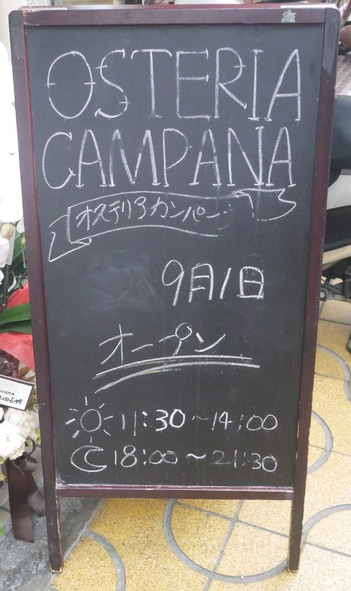 OSTERIA
CAMPANA
オステリアカンパーニ
9月1日
オープン
11:30~14:00
18:00~21:30